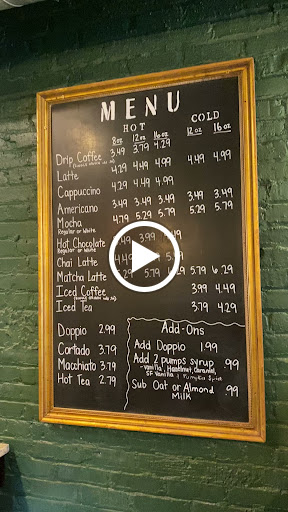 MENU
HOT COLD
8oz 12oz 16oz 12oz 16oz
Drip Coffee 3.49 3.79 4.29
Latte 4.29 4.49 4.99 4.49 4.99
Cappuccino 4.29 4.49 4.99
Americano 3.49 3.49 3.49
Mocha 4.79 5.29 5.79 5.29 5.79
Regular or White
Hot Chocolate 3.99
Regular or White
Chai Latte
Matcha Latte 5.79 5.29 6.29
Iced Coffee 3.99 4.49
Iced Tea 3.79 4.29
Doppio 2.99
Cortado 3.79
Macchiato 3.79
Hot Tea 2.79
Add-Ons
Add Doppio 1.99
Add 2 pumps syrup .99
-vanilla, Hazelnut, caramel,
SF Vanilla & Pumpkin Spice
Sub Oat or Almond .99
Milk